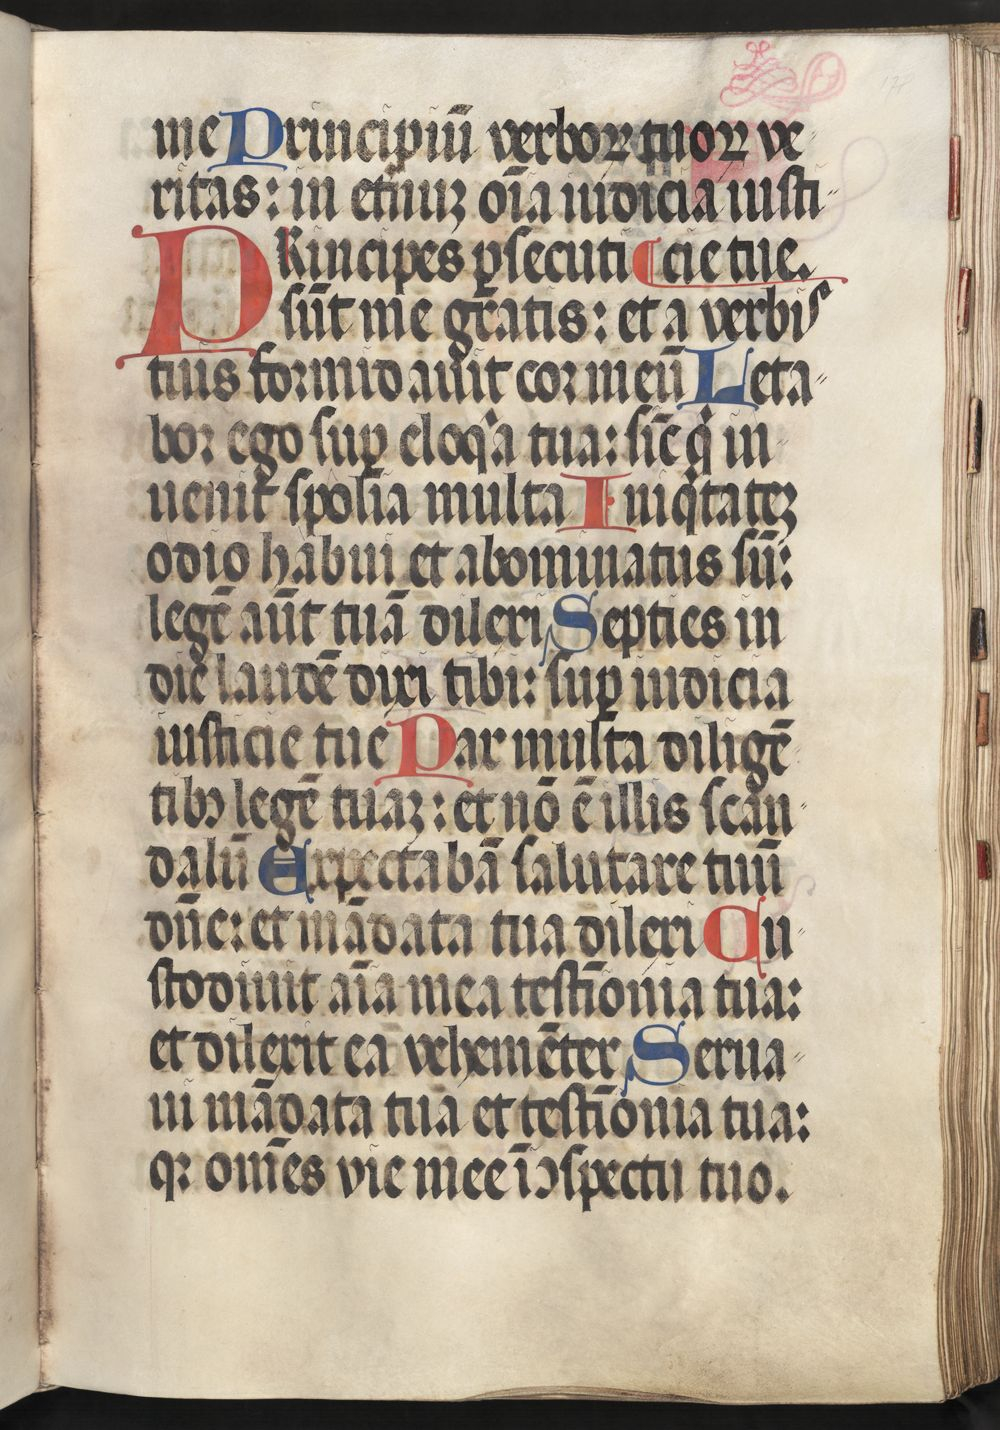 me Principiū verboꝝ tuoꝝ ve
ritas: in et̄nuʒ oīa iudicia iusti
PRincipes ꝑsecuti ¶cie tue.
sūt me gr̄atis: et a verbis
tuis formidauit cor meū Leta
bor ego suꝑ eloqͥa tua: sic̄ qͥ in
uenit spolia multa Iniqͥtateʒ
odio habui et abominatus sū:
legē aūt tuā dilexi Septies in
die laudē dixi tibi: suꝑ iudicia
iusticie tue Pax multa diligē
tibꝰ legē tuaʒ: et nō ē illis scan
dalū Expectabā salutare tuū
dn̄e: et mādata tua dilexi Cu
stodiuit aīa mea testīonia tua:
et dilexit ea vehemēter Serua
ui mādata tua et testīonia tua:
qꝛ om̄es vie mee ī ꝯspectu tuo.